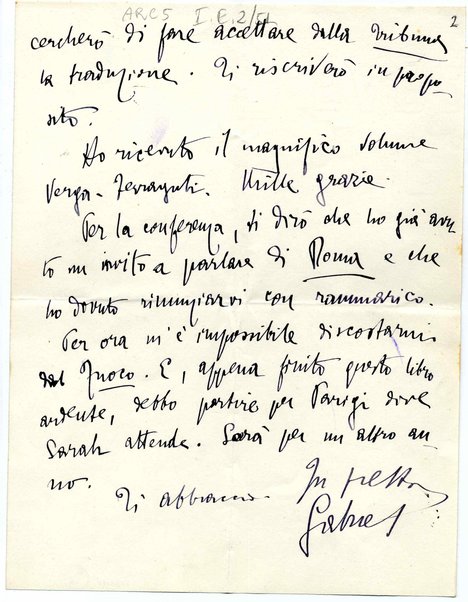 ARC5 I.E.2/
2
cercherò di fare accettare dalla Tribuna
la traduzione. Ti riscriverò in propo-
sito.
Ho ricevuto il magnifico volume
Verga-Ferraguti. Mille grazie.
Per la conferenza, ti dirò che ho già avu-
to un invito a parlare di Roma e che
ho dovuto rinunziarvi con rammarico.
Per ora m'è impossibile discostarmi
dal Fuoco. E, appena finito questo libro
ardente, debbo partire per Parigi dove
Sarah attende. Sarà per un altro an-
no.
Ti abbraccio. In fretta.
Gabriel